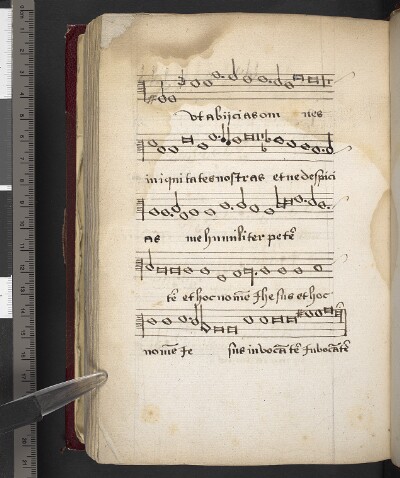 vt abijcias om nes
iniqui tates nostras et ne despici
as me humiliter petē
tē et hoc nomē Jhesus et hoc
nomē Je sus invocātē Invocātē